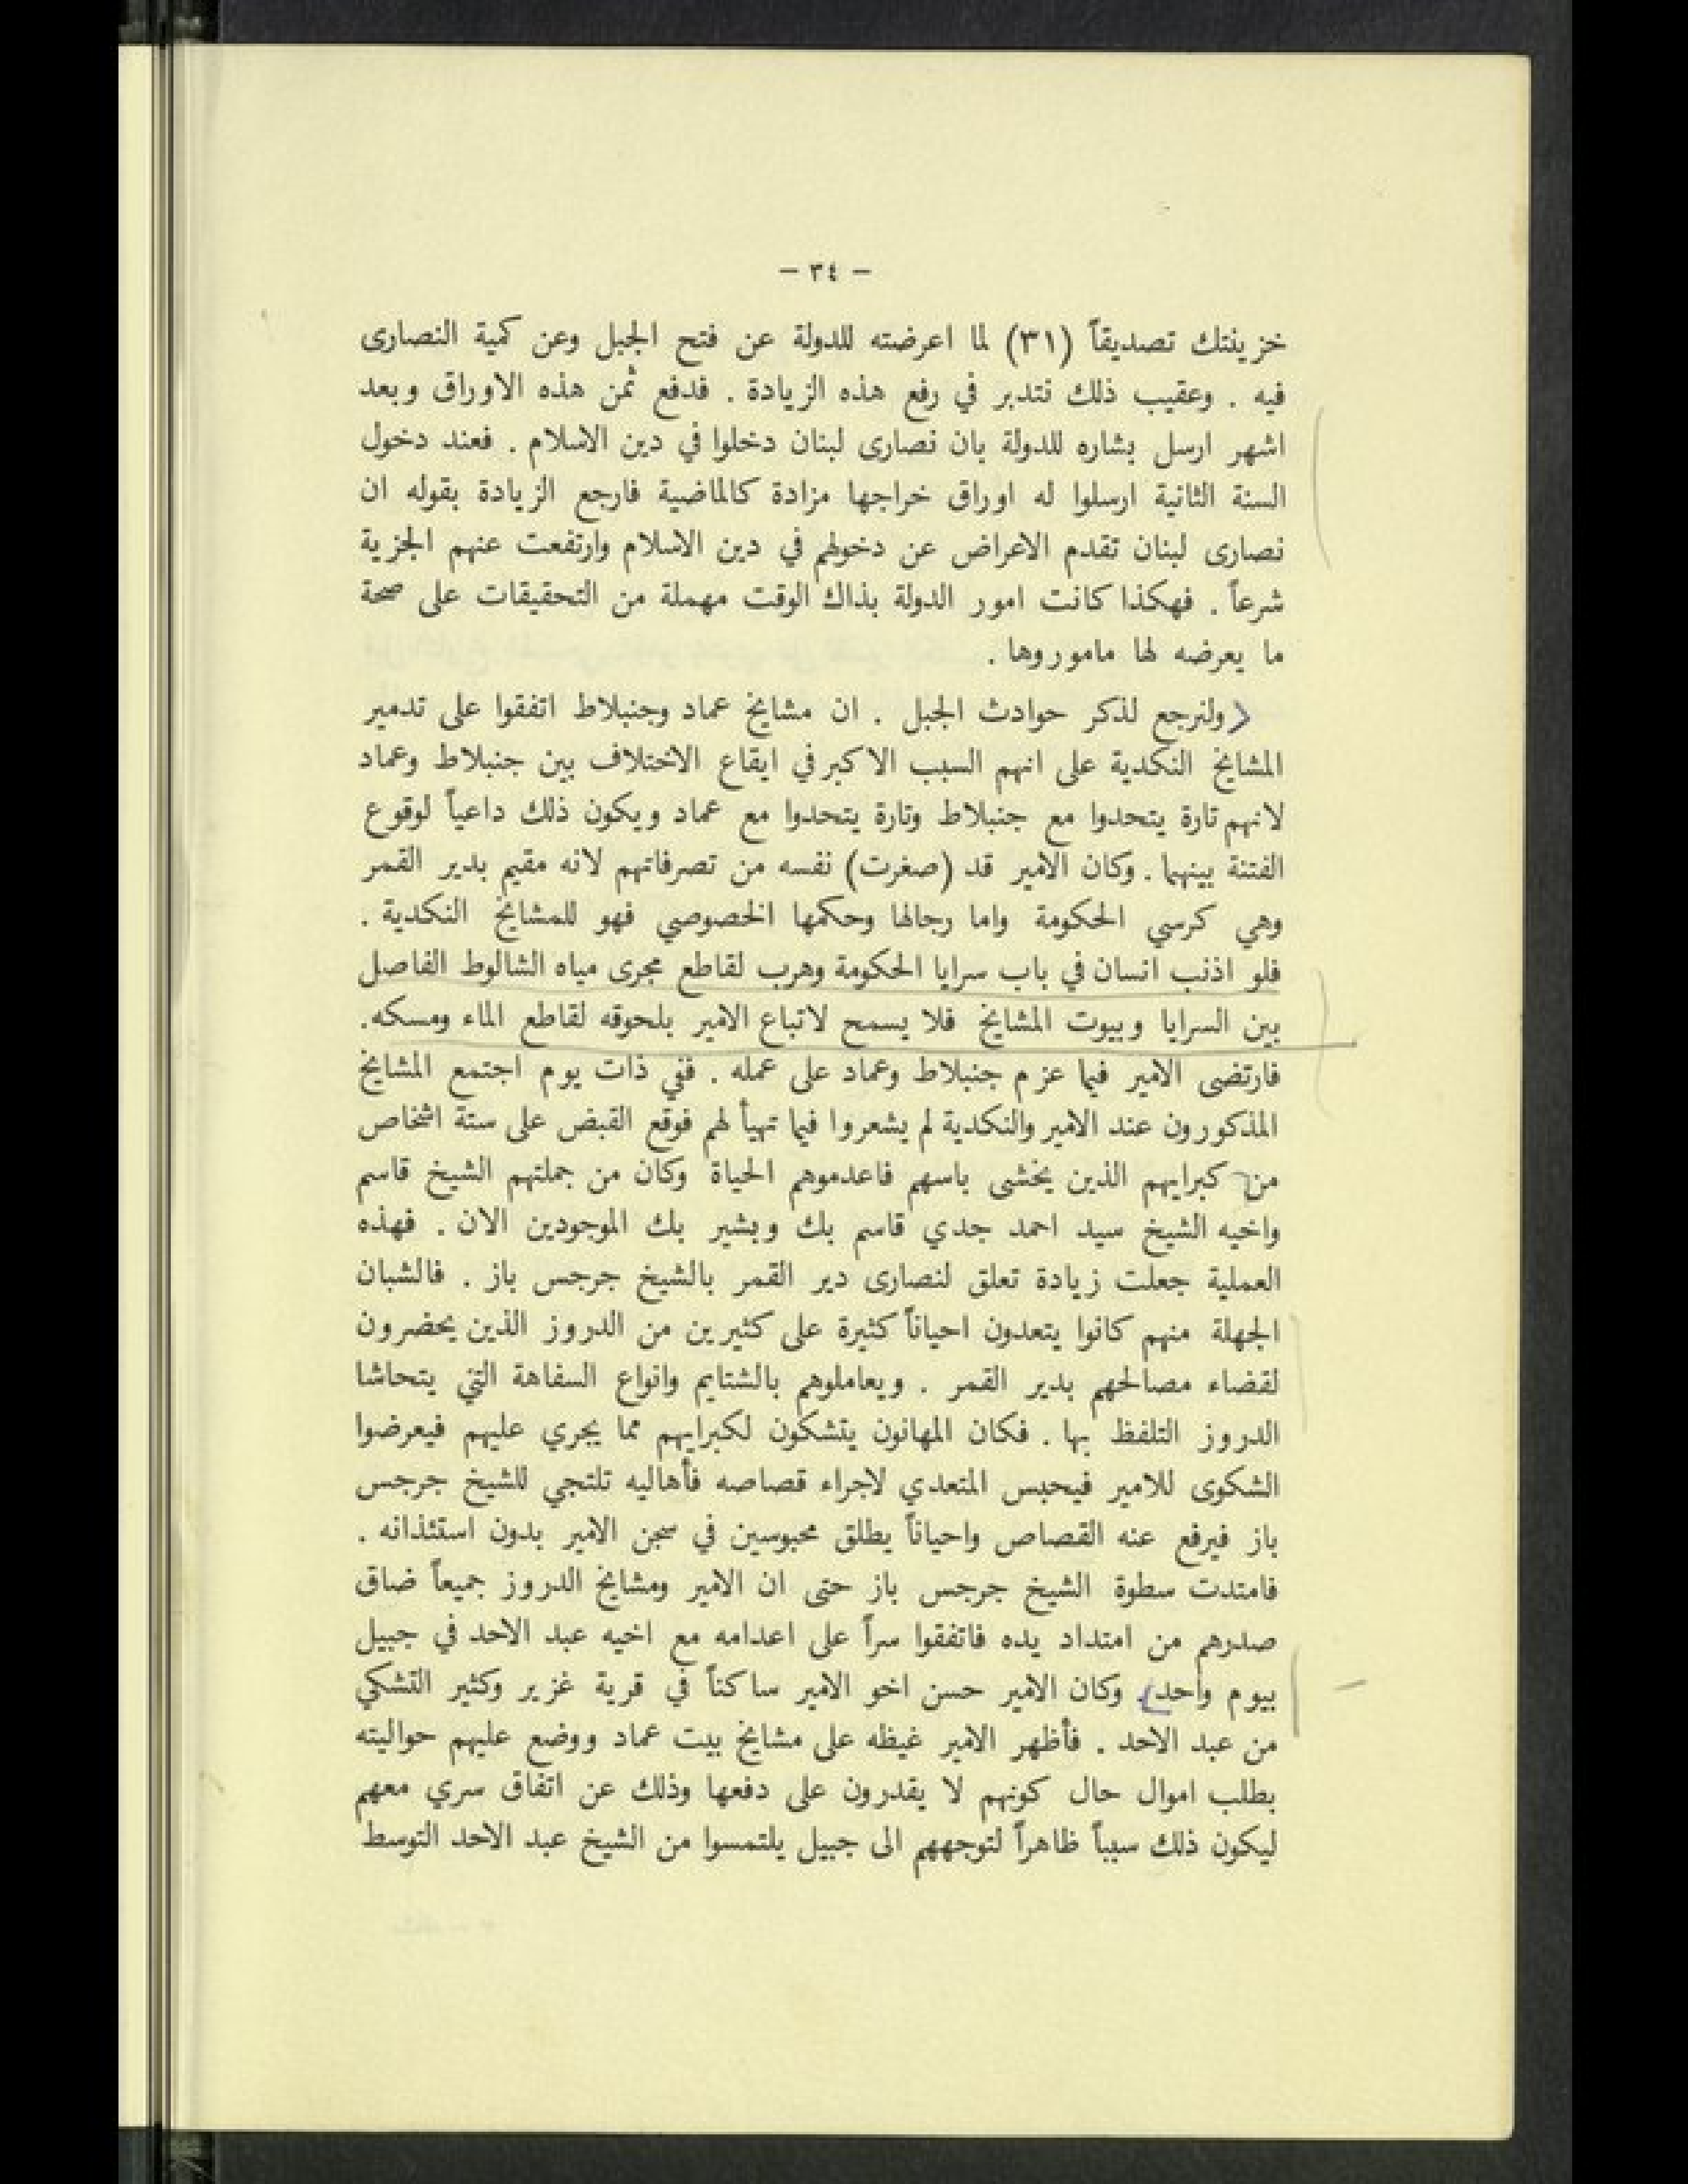 – ٣٤ –
خزينتك تصديقاً (٣١) لما اعرضته للدولة عن فتح الجبل وعن كمية النصارى
فيه . وعقيب ذلك نتدبر في رفع هذه الزيادة . فدفع ثمن هذه الاوراق وبعد
اشهر ارسل بشاره للدولة بان نصارى لبنان دخلوا في دين الاسلام . فعند دخول
السنة الثانية ارسلوا له اوراق خراجها مزادة كالماضية فارجع الزيادة بقوله ان
نصارى لبنان تقدم الاعراض عن دخولهم في دين الاسلام وارتفعت عنهم الجزية
شرعاً . فهكذا كانت امور الدولة بذاك الوقت مهملة من التحقيقات على صحة
ما يعرضه لها ماموروها .
ولنرجع لذكر حوادث الجبل . ان مشايخ عماد وجنبلاط اتفقوا على تدمير
المشايخ النكدية على انهم السبب الاكبر في ايقاع الاختلاف بين جنبلاط وعماد
لانهم تارة يتحدوا مع جنبلاط وتارة يتحدوا مع عماد ويكون ذلك داعياً لوقوع
الفتنة بينهما . وكان الامير قد (صغرت) نفسه من تصرفاتهم لانه مقيم بدير القمر
وهي كرسي الحكومة واما رجالها وحكمها الخصوصي فهو للمشايخ النكدية .
فلو اذنب انسان في باب سرايا الحكومة وهرب لقاطع مجرى مياه الشالوط الفاصل
بين السرايا وبيوت المشايخ فلا يسمح لاتباع الامير بلحوقه لقاطع الماء ومسكه.
فارتضى الامير فيما عزم جنبلاط وعماد على عمله . ففي ذات يوم اجتمع المشايخ
المذكورون عند الامير والنكدية لم يشعروا فيما تهيأ لهم فوقع القبض على ستة اشخاص
من كبرايهم الذين يخشى باسهم فاعدموهم الحياة وكان من جملتهم الشيخ قاسم
واخيه الشيخ سيد احمد جدي قاسم بك وبشير بك الموجودين الان . فهذه
العملية جعلت زيادة تعلق لنصارى دير القمر بالشيخ جرجس باز . فالشبان
الجهلة منهم كانوا يتعدون احياناً كثيرة على كثيرين من الدروز الذين يحضرون
لقضاء مصالحهم بدير القمر . ويعاملوهم بالشتايم وانواع السفاهة التي يتحاشا
الدروز التلفظ بها . فكان المهانون يتشكون لكبرايهم مما يجري عليهم فيعرضوا
الشكوى للامير فيحبس المتعدي لاجراء قصاصه فأهاليه تلتجي للشيخ جرجس
باز فيرفع عنه القصاص واحياناً يطلق محبوسين في سجن الامير بدون استئذانه .
فامتدت سطوة الشيخ جرجس باز حتى ان الامير ومشايخ الدروز جميعاً ضاق
صدرهم من امتداد يده فاتفقوا سراً على اعدامه مع اخيه عبد الاحد في جبيل
بيوم واحد . وكان الامير حسن اخو الامير ساكناً في قرية غزير وكثير التشكي
من عبد الاحد . فأظهر الامير غيظه على مشايخ بيت عماد ووضع عليهم حواليته
بطلب اموال حال كونهم لا يقدرون على دفعها وذلك عن اتفاق سري معهم
ليكون ذلك سبباً ظاهراً لتوجههم الى جبيل يلتمسوا من الشيخ عبد الاحد التوسط